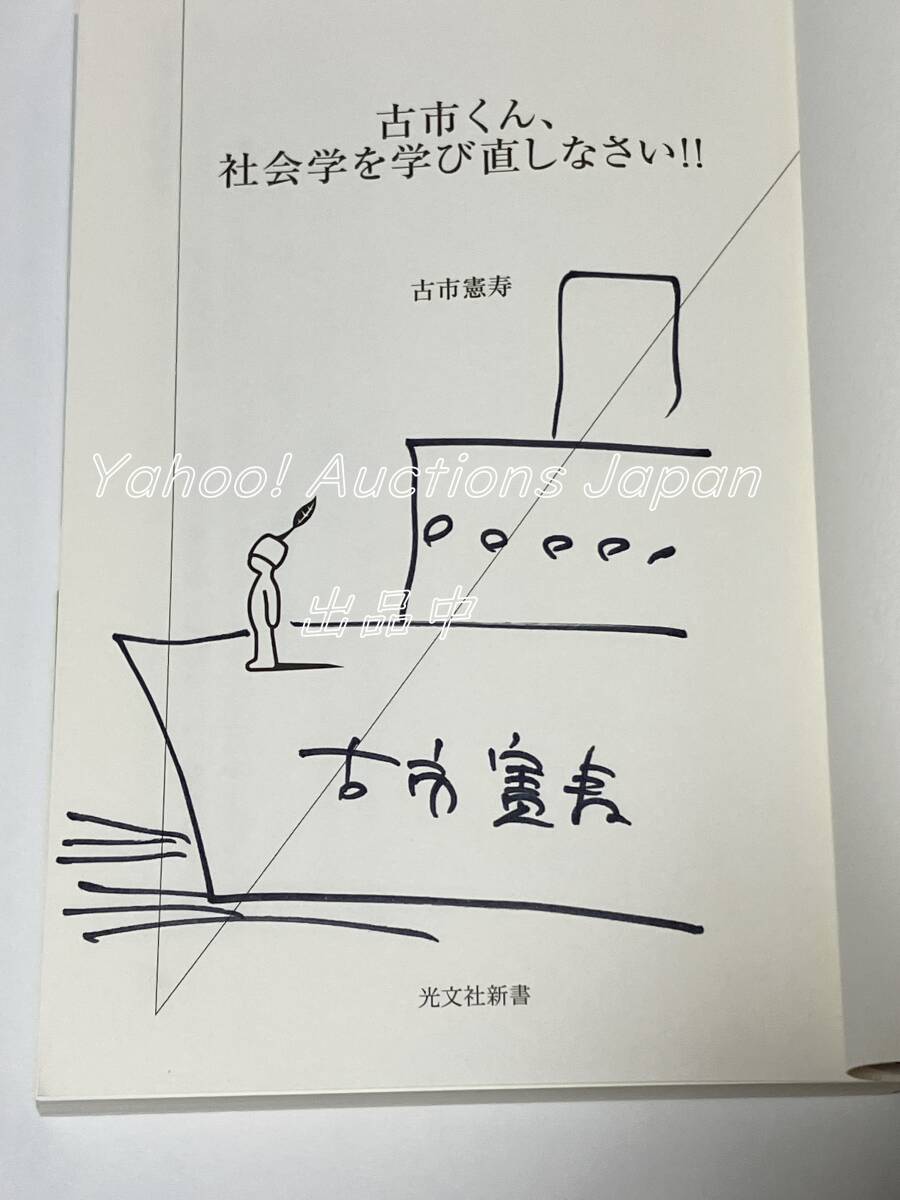 古市くん、
社会学を学び直しなさい!!
古市憲寿
Yahoo! Auctions Japan
出品中
古市憲寿
光文社新書